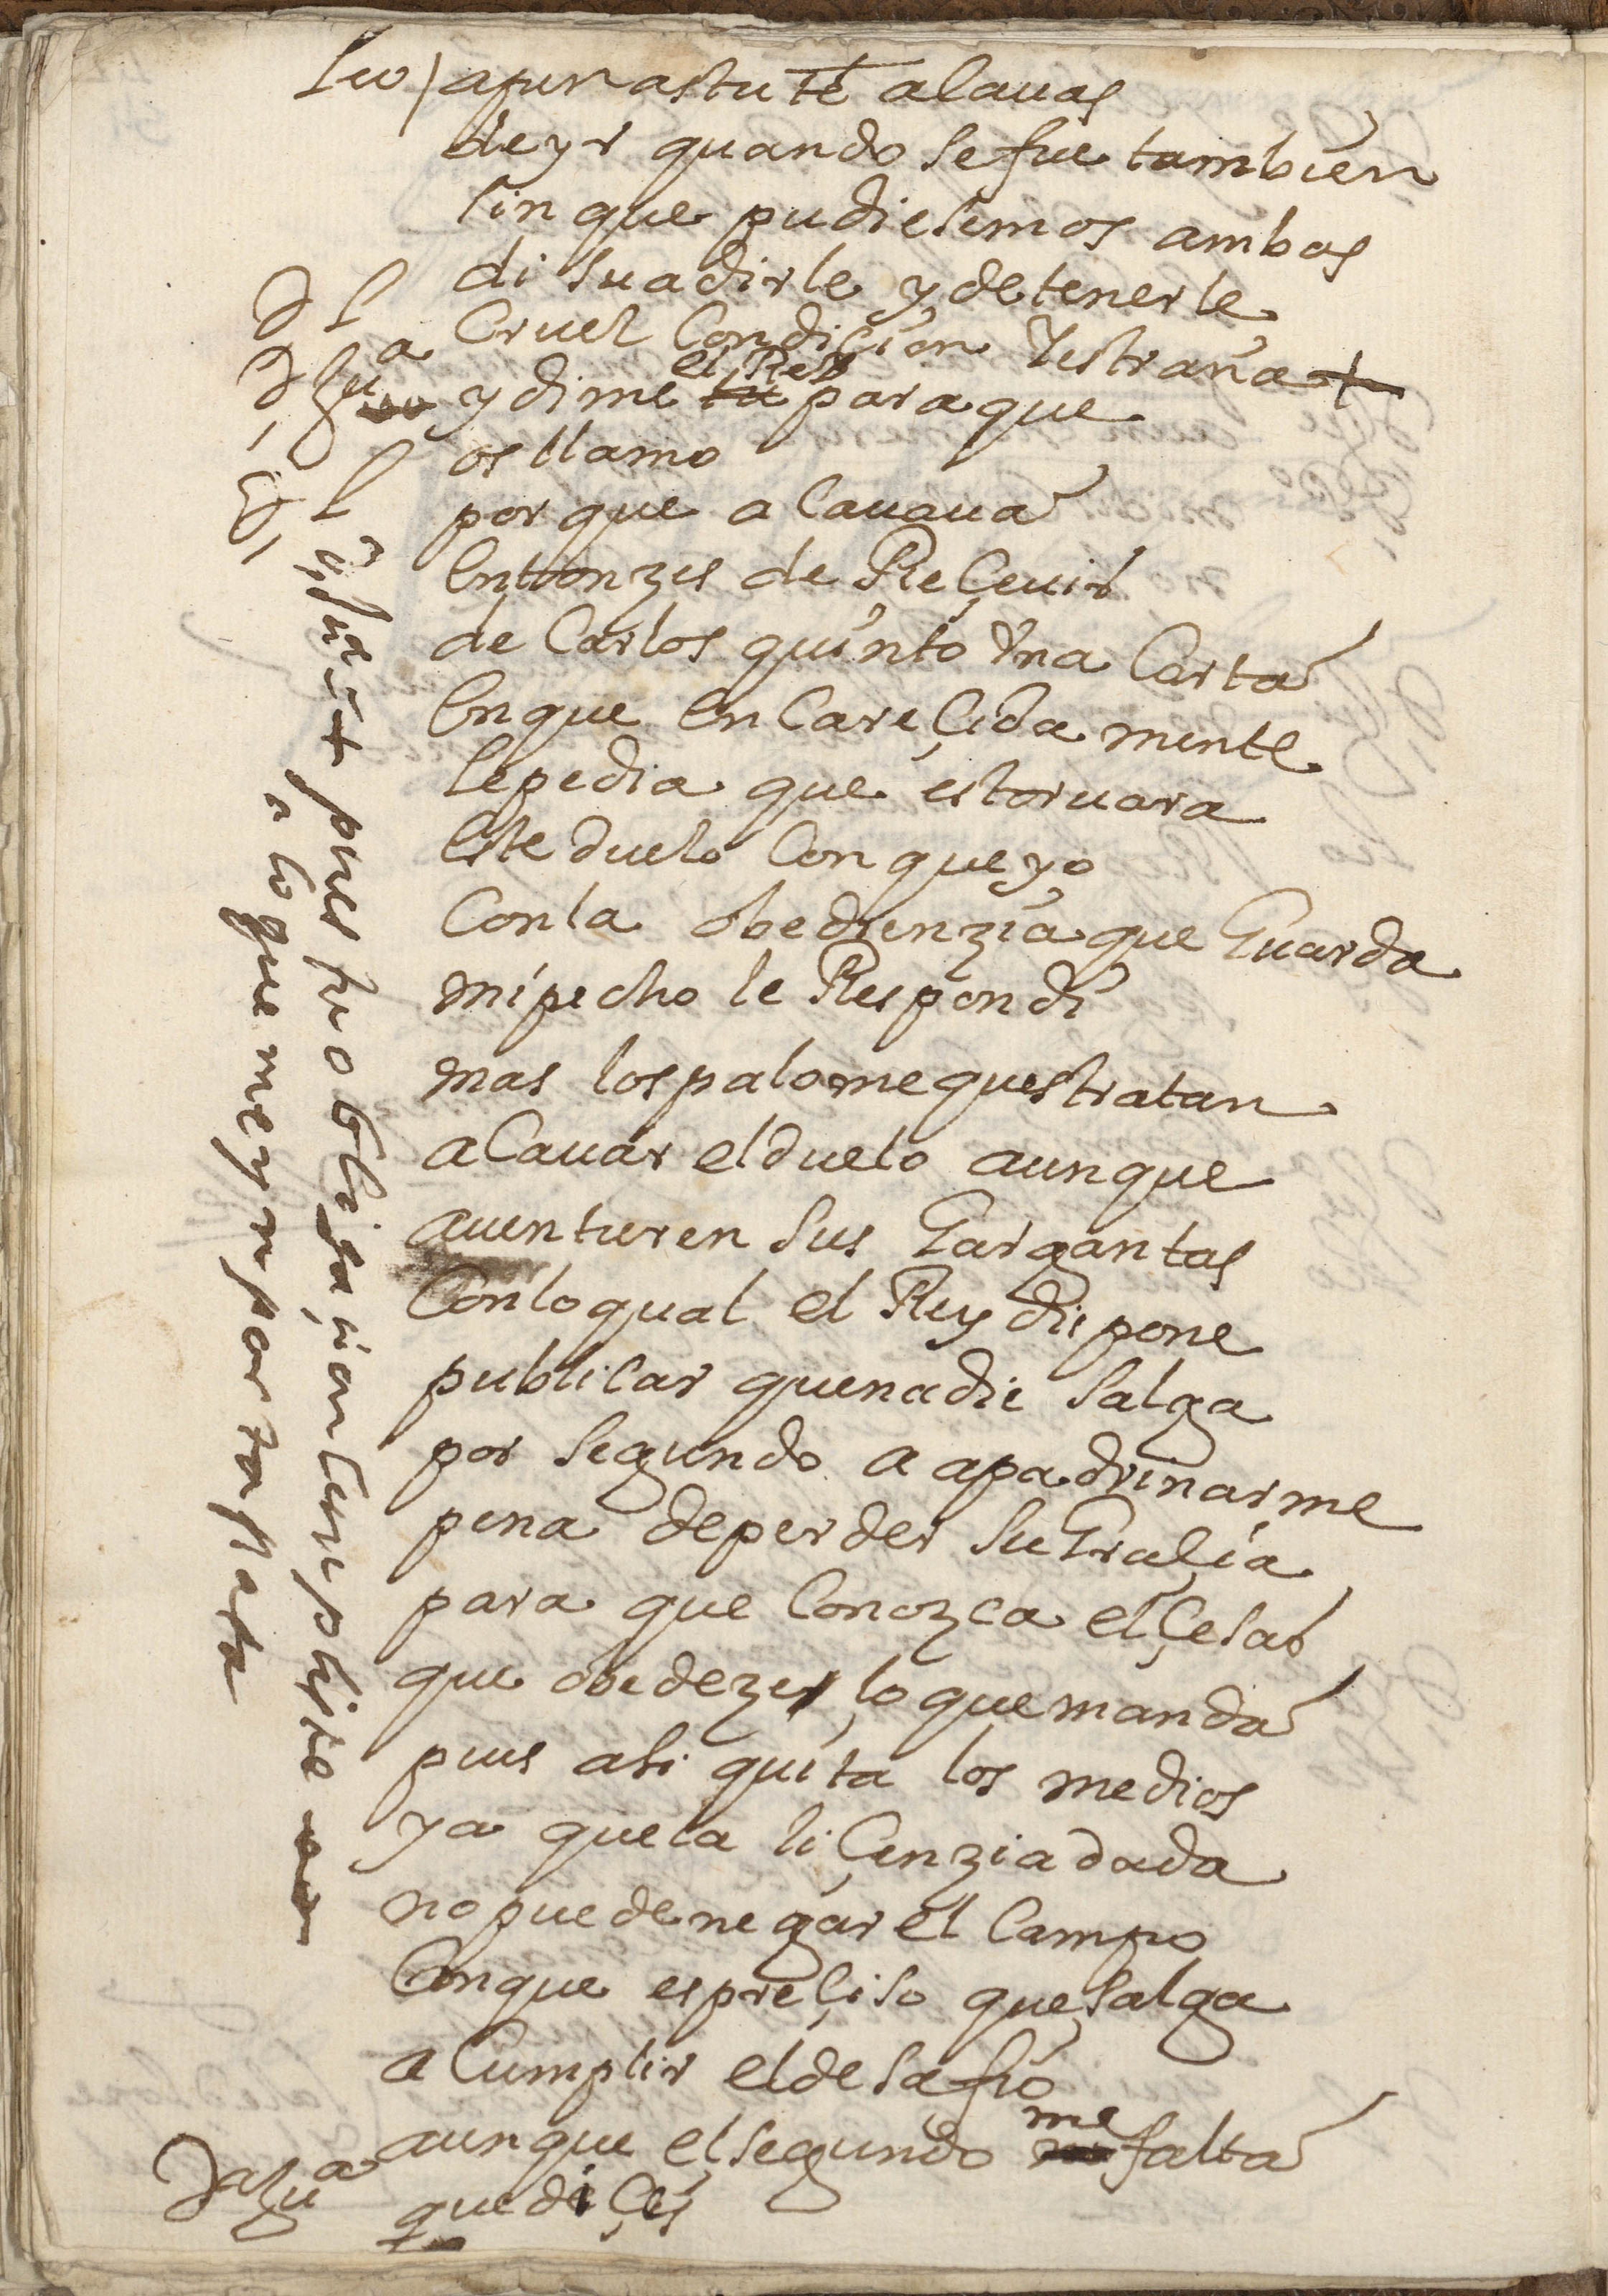 leo) apenas tu te alauas
de yr quando se fue tambien
sin que pudiesemos ambos
disuadirle y detenerle
Cruel Condiçion Yestraña +
y dime el Rey para que
os llamo
por que acauaua
Entonzes de Reçeuir
de Carlos quinto Vna Carta
En que En Careçida mente
le pedia que estoruara
Este duelo Con que yo
Con la obedienzia que Guarda
mi pecho le Respondi
mas los palomeques tratan
aCauar el duelo aunque
auenturen Sus Gargantas
Con lo qual el Rey dispone
publicar que nadie Salga
por Segundo a apadrinarme
pena de perder Su Graçia
para que Conozca el Çesar
que obedeze lo que manda
pues asi quita los medios
ya que la liçenzia dada
no puede negar el Campo
Con que es preçiso que Salga
a Cumplir el desafio
aunque el segundo me falta
Dª Zuª que diçes
+ pues su obligaçion Cumplio
a lo que mas ynporta falta